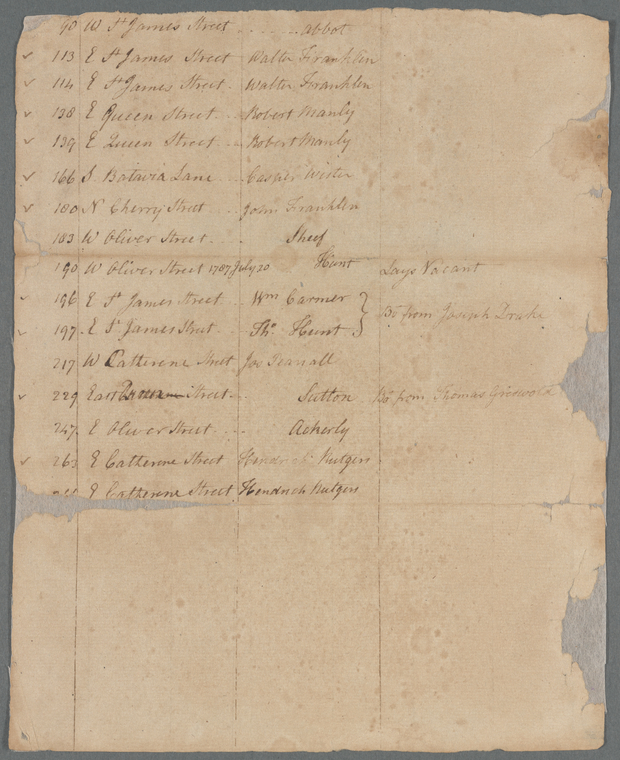 90 W St James Street . . . . . . . abbot
✓ 113 E St James Street Walter Franklen
✓ 114 E St James Street Walter Franklen
✓ 138 E Queen Street . . . Robert Manly
✓ 139 E Queen Street . . . Robert Manly
✓ 166 S Batavia Lane . . Casper Wister
✓ 180 N Cherry Street . . John Franklen
183 W Oliver Street . . . Sheef
190 W Oliver Street 1787 July 20 Hunt Lays Vacant
✓ 196 E St James Street . . Wm Carmer
✓ 197 E St James Street . . Tho. Hunt } Bo from Joseph Drake
217 W Catherene Street Jos Pearsall
✓ 229 East Street . . Sutton Bo from Thomas Griswold
247 E Oliver Street . . . Ackerly
✓ 263 E Catherene Street Hendrick Rutgers
E Catherene Street Hendrick Rutgers